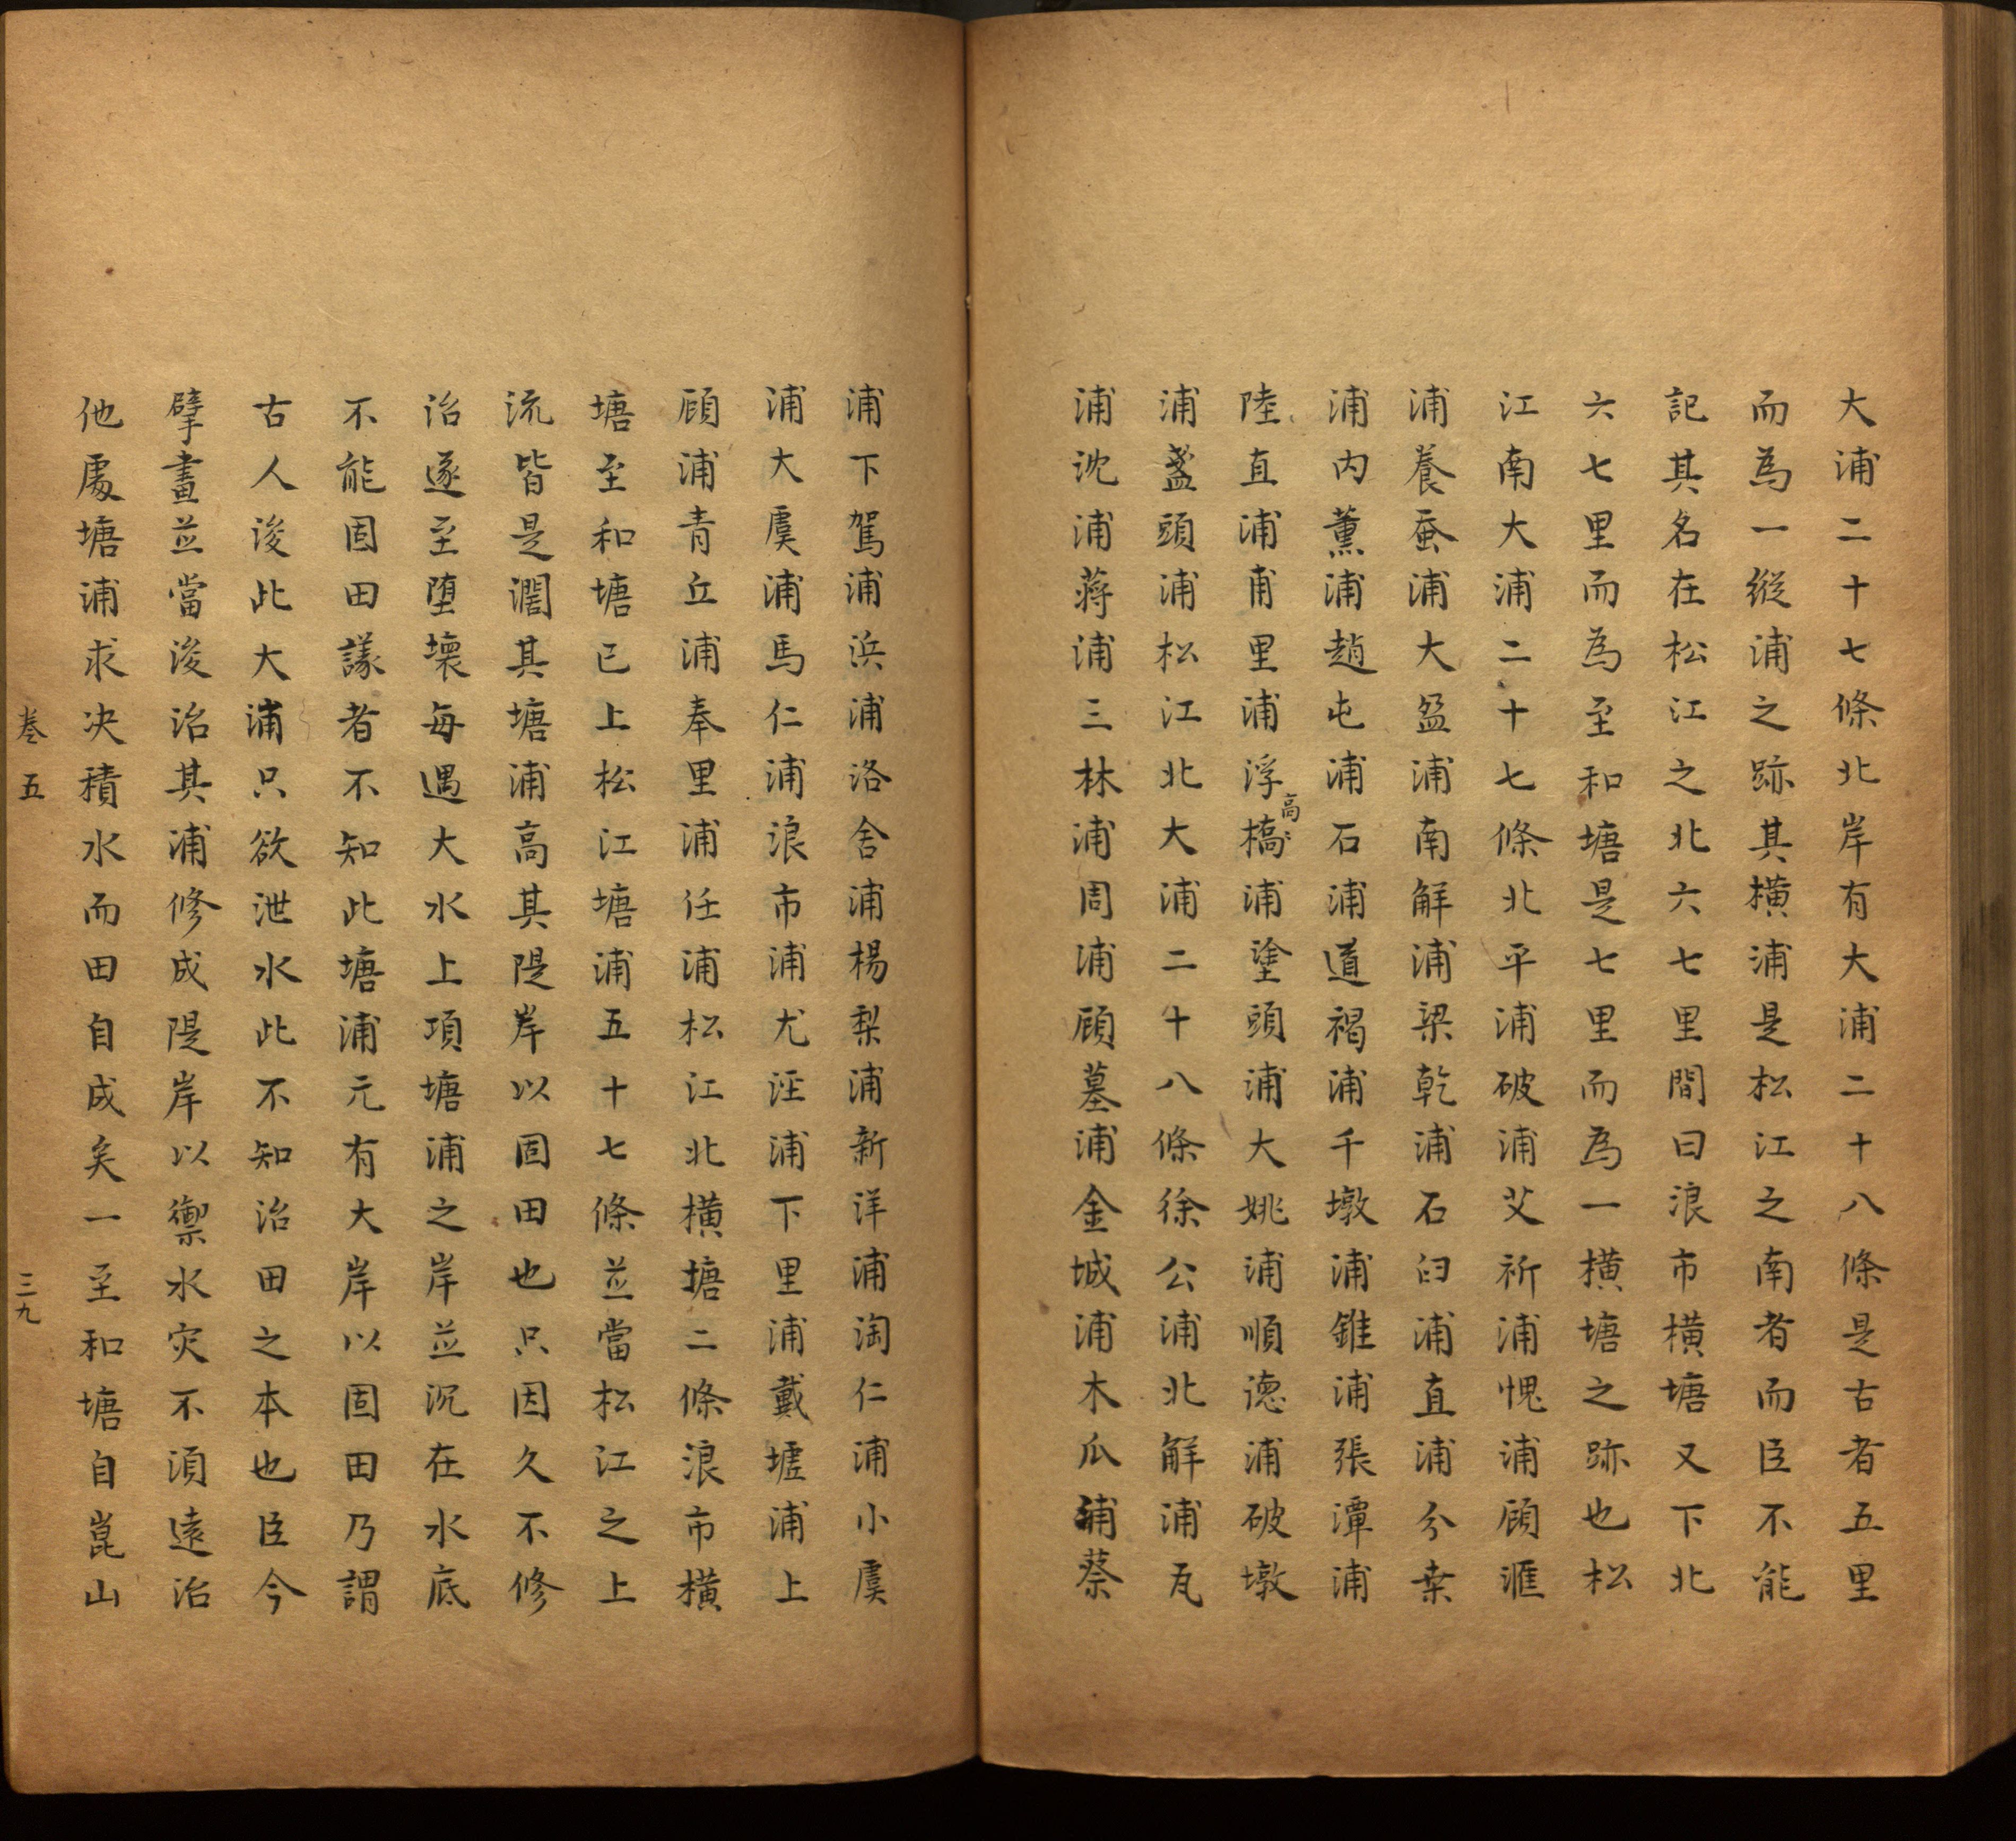 大浦二十七條北岸有大浦二十八條是古者五里
而為一縱浦之跡其橫浦是松江之南者而臣不能
記其名在松江之北六七里間曰浪市橫塘又下北
六七里而為至和塘是七里而為一橫塘之跡也松
江南大浦二十七條北平浦破浦艾祈浦愧浦顧滙
浦養蚕浦大盈浦南解浦梁乾浦石臼浦直浦分桒
浦内薰浦趙屯浦石浦道褐浦千墩浦錐浦張潭浦
陸直浦甫里浦浮高橋浦塗頭浦大姚浦順德浦破墩
浦盞頭浦松江北大浦二十八條徐公浦北解浦瓦
浦沈浦蒋浦三林浦周浦顧墓浦金城浦木瓜浦蔡
浦下駕浦浜浦洛舍浦楊梨浦新洋浦淘仁浦小虞
浦大虞浦馬仁浦浪市浦尤涇浦下里浦戴墟浦上
顧浦青丘浦奉里浦任浦松江北橫塘二條浪市橫
塘至和塘已上松江塘浦五十七條並當松江之上
流皆是濶其塘浦高其隄岸以固田也只因久不修
治遂至堕壞每遇大水上項塘浦之岸並沉在水底
不能固田議者不知此塘浦元有大岸以固田乃謂
古人浚此大浦只欲泄水此不知治田之本也臣今
擘畫並當浚治其浦修成隄岸以禦水灾不湏遠治
他處塘浦求决積水而田自成矣一至和塘自崑山
卷五 三九